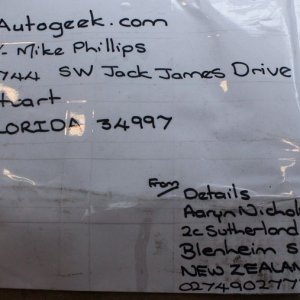 Autogeek.com
- Mike Phillips
744 SW Jack James Drive
tuart
LORIDA 34997
From Details
Aaryn Nichol
2c Sutherland
Blenheim S
NEW ZEALAN
027490277